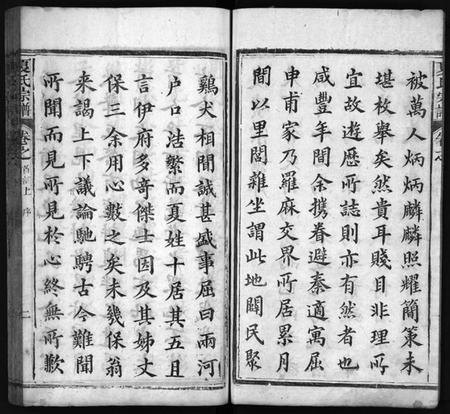 被萬人炳炳麟麟照耀簡策未
堪枚舉矣然貴耳賤目非理所
宜故遊歷所誌則亦有然者也
咸豐年間余携眷避秦適寓屈
申甫家乃羅麻交界所居累月
間以里閭雜坐謂此地闢民聚
雞犬相聞誠甚盛事屈曰兩河
户口浩繁而夏姓十居其五且
言伊府多奇傑士因及其姊丈
保三余用心數之矣未幾保翁
来謁上下議論馳騁古今難聞
所聞而見所見於心終無所歉
夏氏宗譜
卷之
序
二